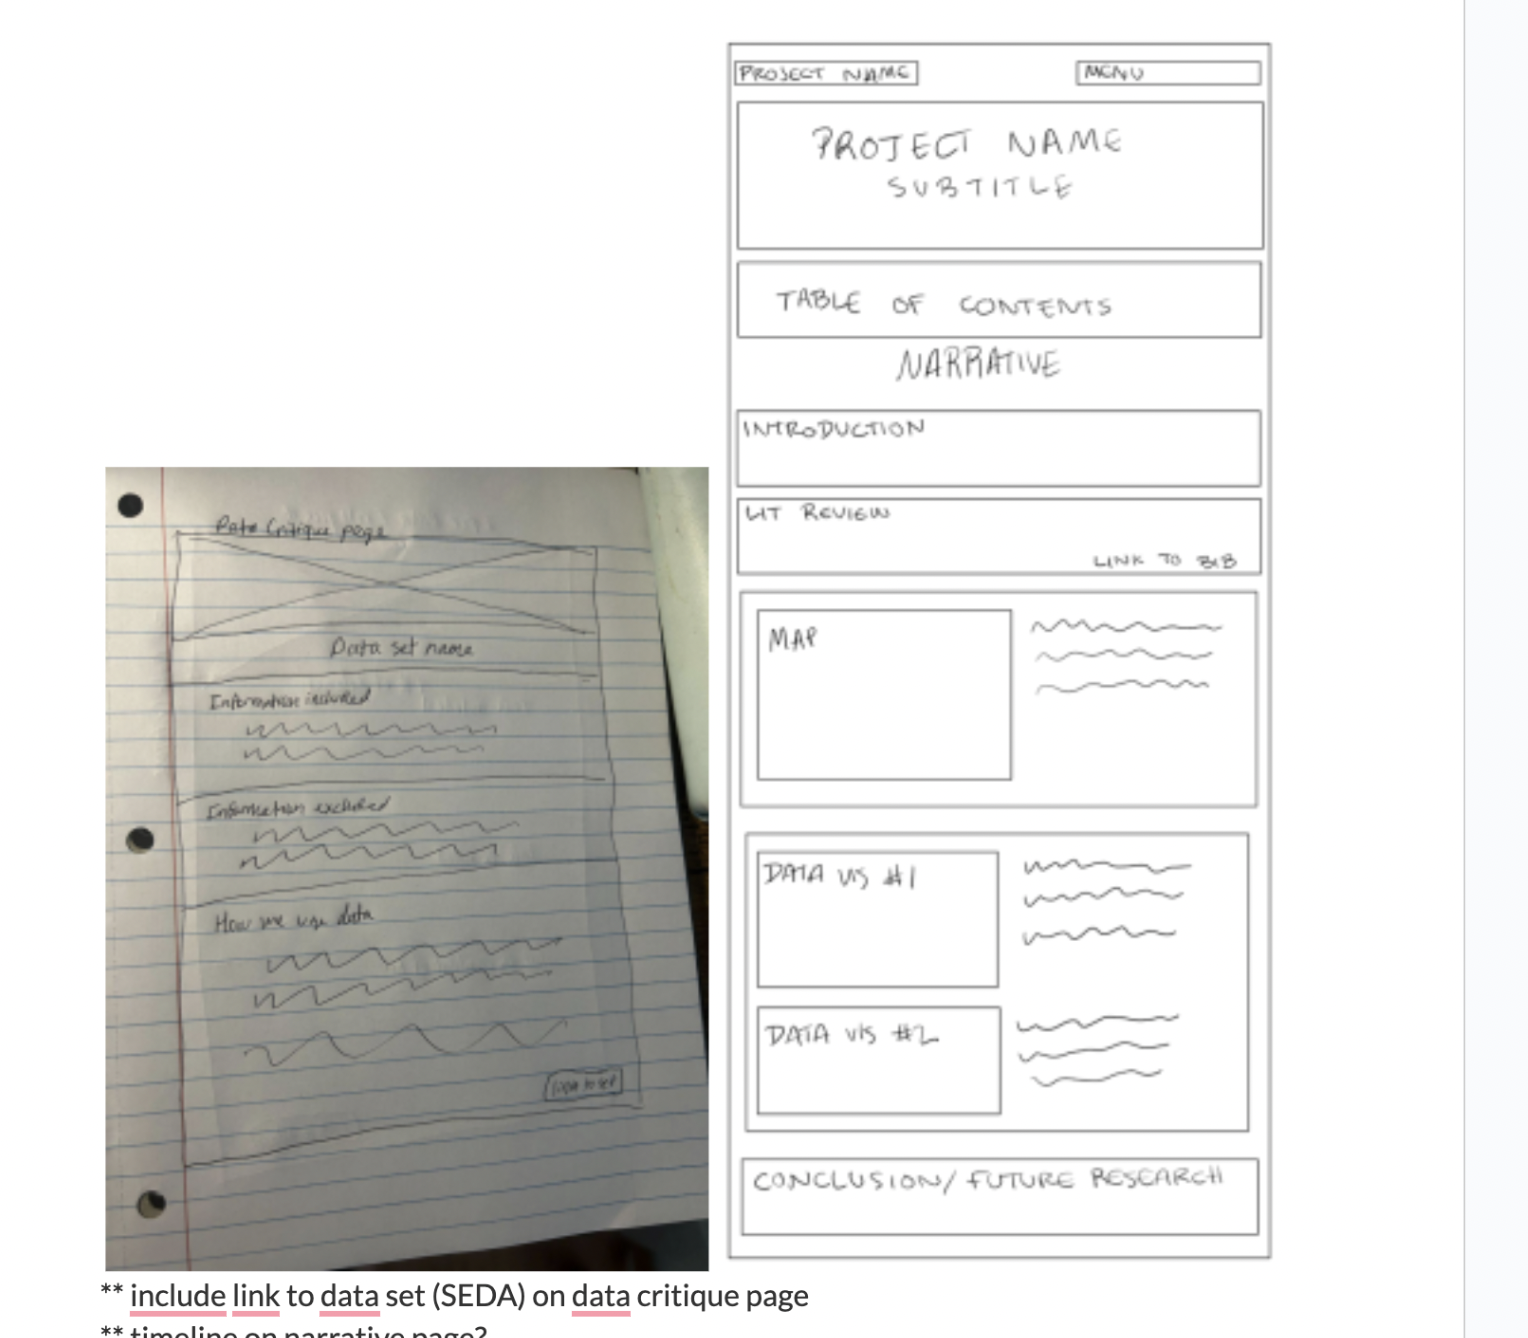 Data Critique page
Data set name
Information included
Information excluded
How we use data
PROJECT NAME
MENU
PROJECT NAME
SUBTITLE
TABLE OF CONTENTS
NARRATIVE
INTRODUCTION
LIT REVIEW
LINK TO BIB
MAP
DATA VIS #1
DATA VIS #2
CONCLUSION/ FUTURE RESEARCH
** include link to data set (SEDA) on data critique page
** timeline on narrative page?